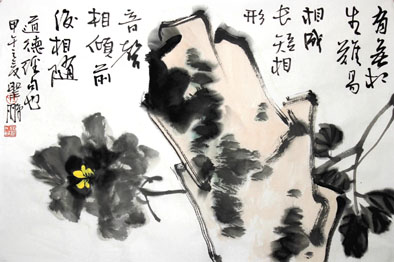 有無相
生難易
相成
长短相
形
音聲
相傾前
後相隨
道德经句
甲午